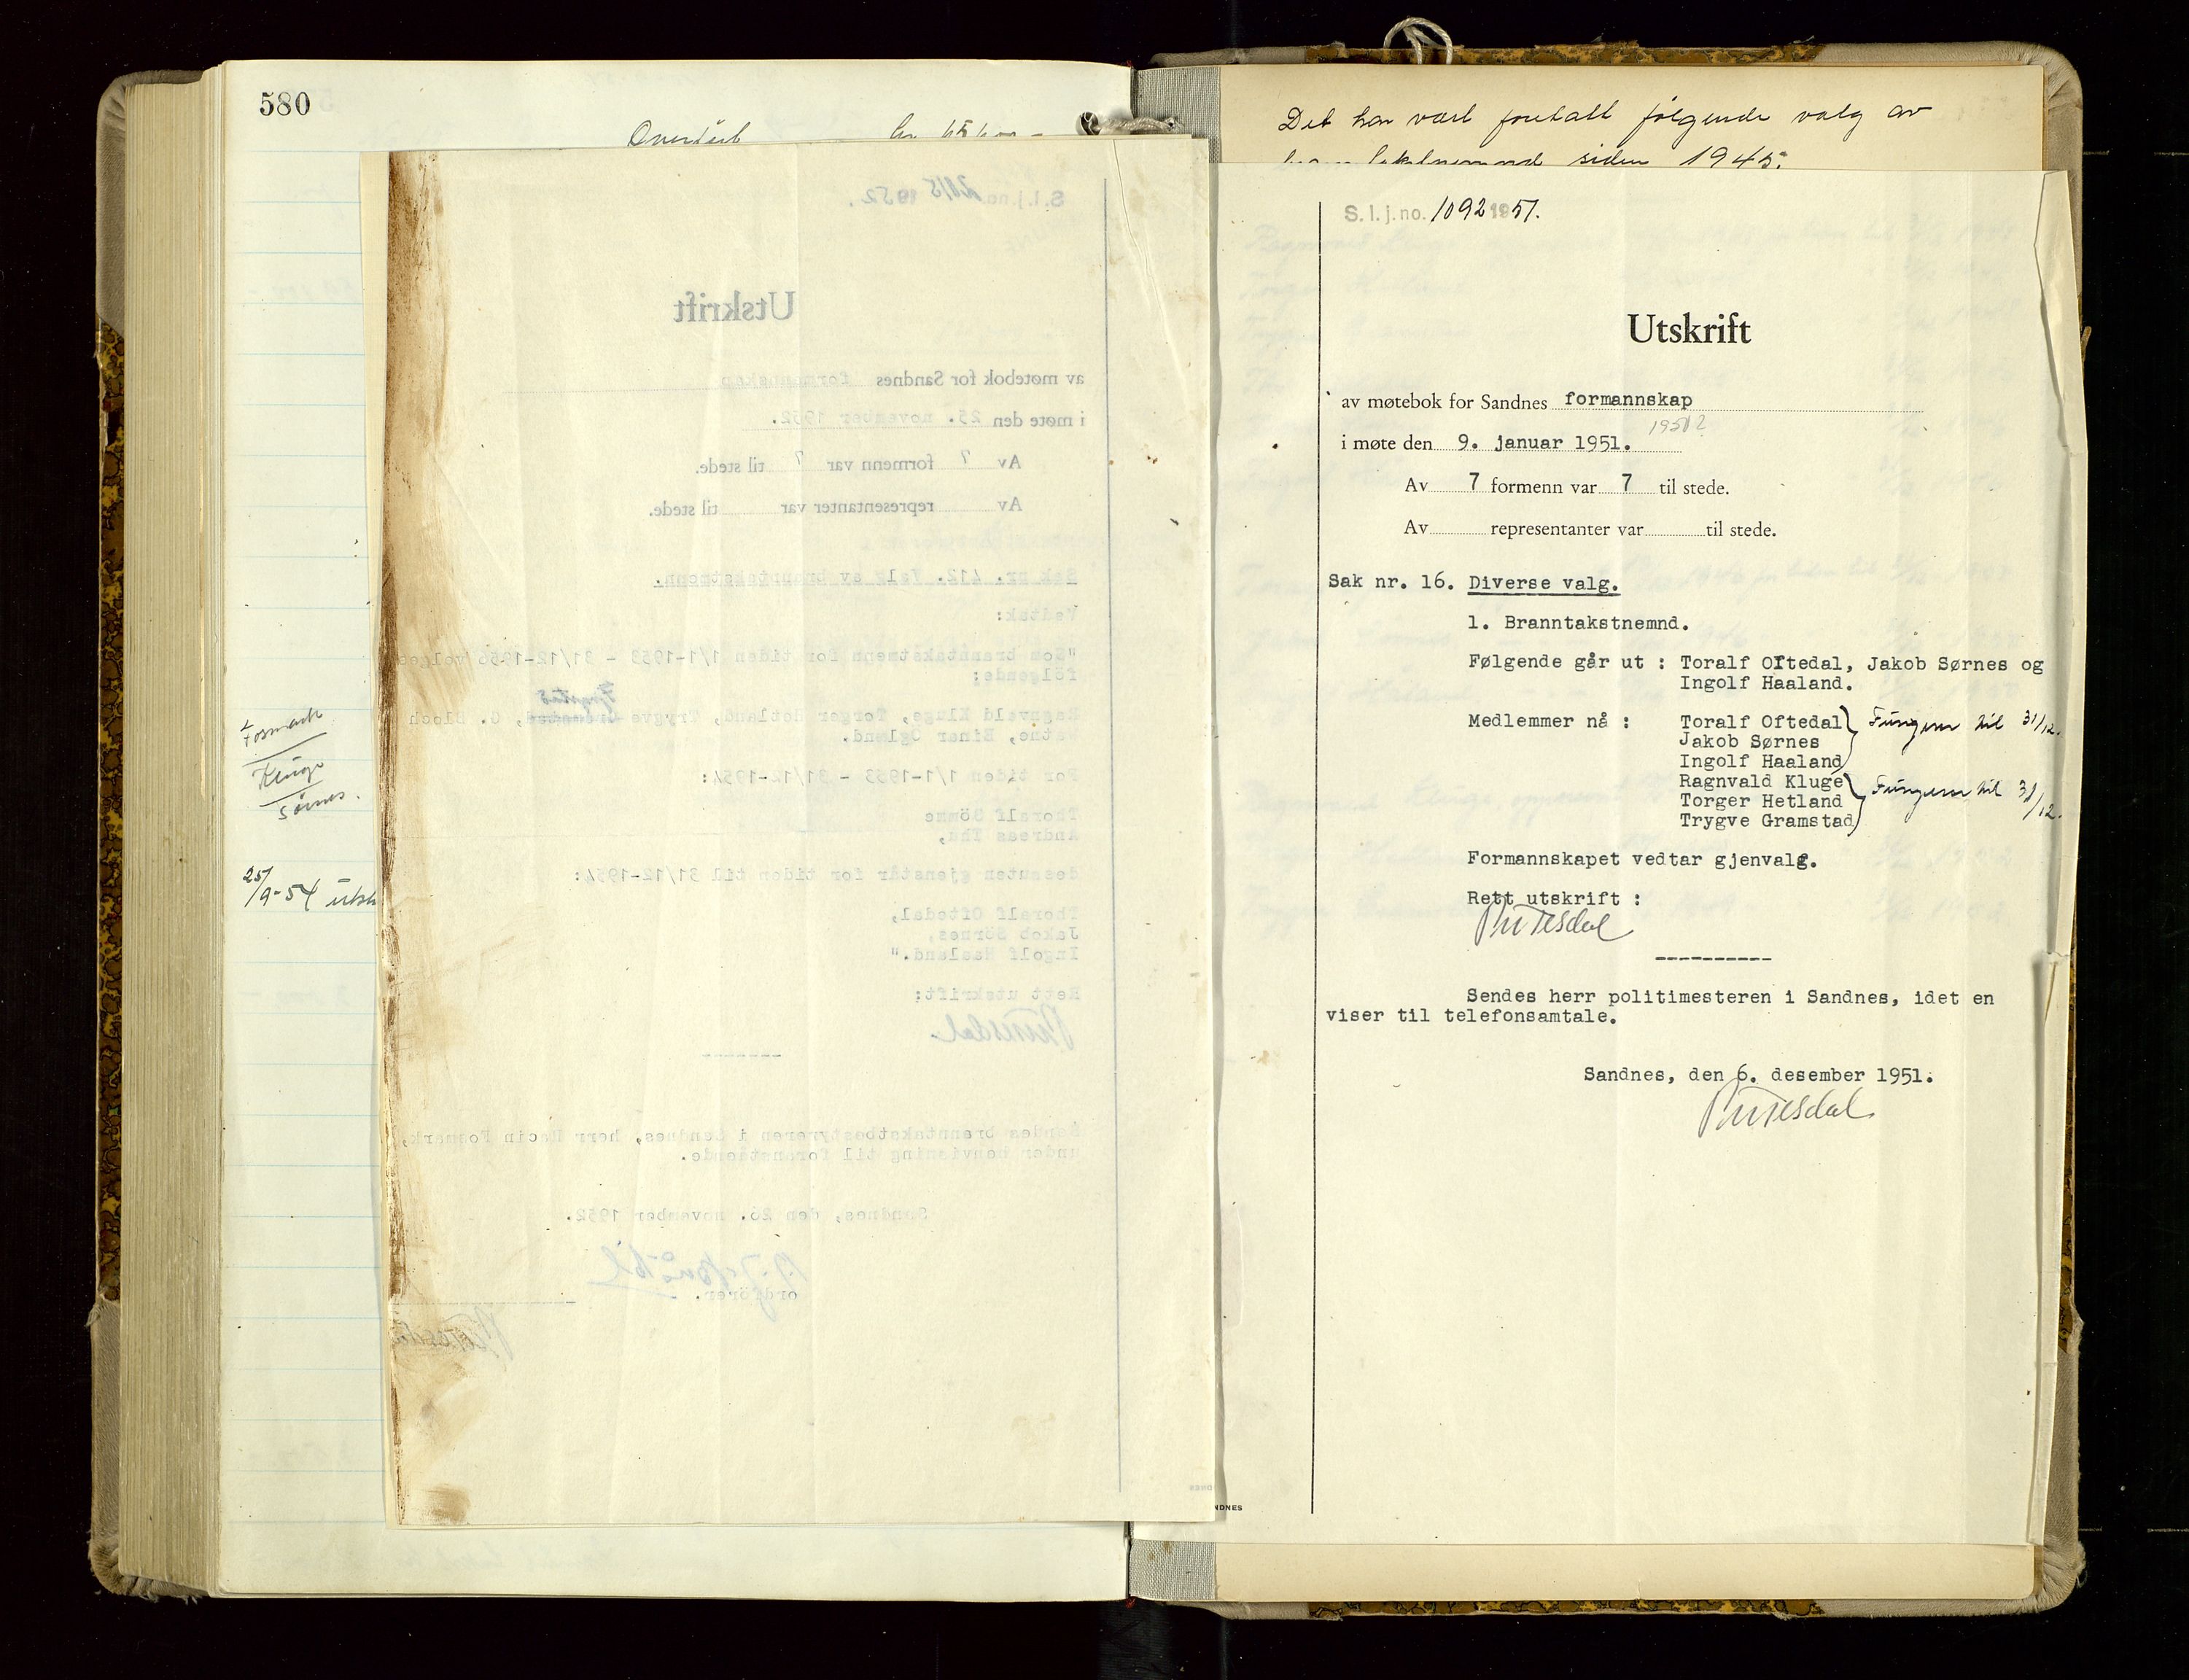 580
Fosmark
Kluge
Sørnes.
25/9-54 utsk
Det har vært foretatt følgende valg av
siden 1945.
S. l. j. no. 1092 1951.
Utskrift
av møtebok for Sandnes formannskap
1951?
i møte den 9. januar 1951.
Av 7 formenn var 7 til stede.
Av representanter var til stede.
Sak nr. 16. Diverse valg.
1. Branntakstnemnd.
Følgende går ut : Toralf Oftedal, Jakob Sørnes og
Ingolf Haaland.
Medlemmer nå : Toralf Oftedal
Jakob Sørnes
Ingolf Haaland
Fungerer til 31/12.
Ragnvald Kluge
Torger Hetland
Trygve Gramstad
Fungerer til 31/12.
Formannskapet vedtar gjenvalg.
Rett utskrift :
----------
Sendes herr politimesteren i Sandnes, idet en
viser til telefonsamtale.
Sandnes, den 6. desember 1951.
NDNES
S. l. j. no. 2015 1952.
Utskrift
av møtebok for Sandnes formannskap
i møte den 25. november 1952.
Av 7 formenn var 7 til stede.
Av representanter var til stede.
Sak nr. 412. Valg av branntakstmenn.
Vedtak:
"Som branntakstmenn for tiden 1/1-1953 - 31/12-1956 velges
følgende:
Ragnvald Kluge, Torger Hetland, Trygve O. Bloch
Vatne, Einar Ogland.
For tiden 1/1-1953 - 31/12-1954:
Thoralf Sömme
Andreas Thu,
dessuten gjenstår for tiden til 31/12-1954:
Thoralf Oftedal,
Jakob Sörnes,
Ingolf Haaland."
Rett utskrift:
Sendes branntakstbestyreren i Sandnes, herr Racin Fosmark,
under henvisning til foranstående.
Sandnes, den 26. november 1952.
ordförer.